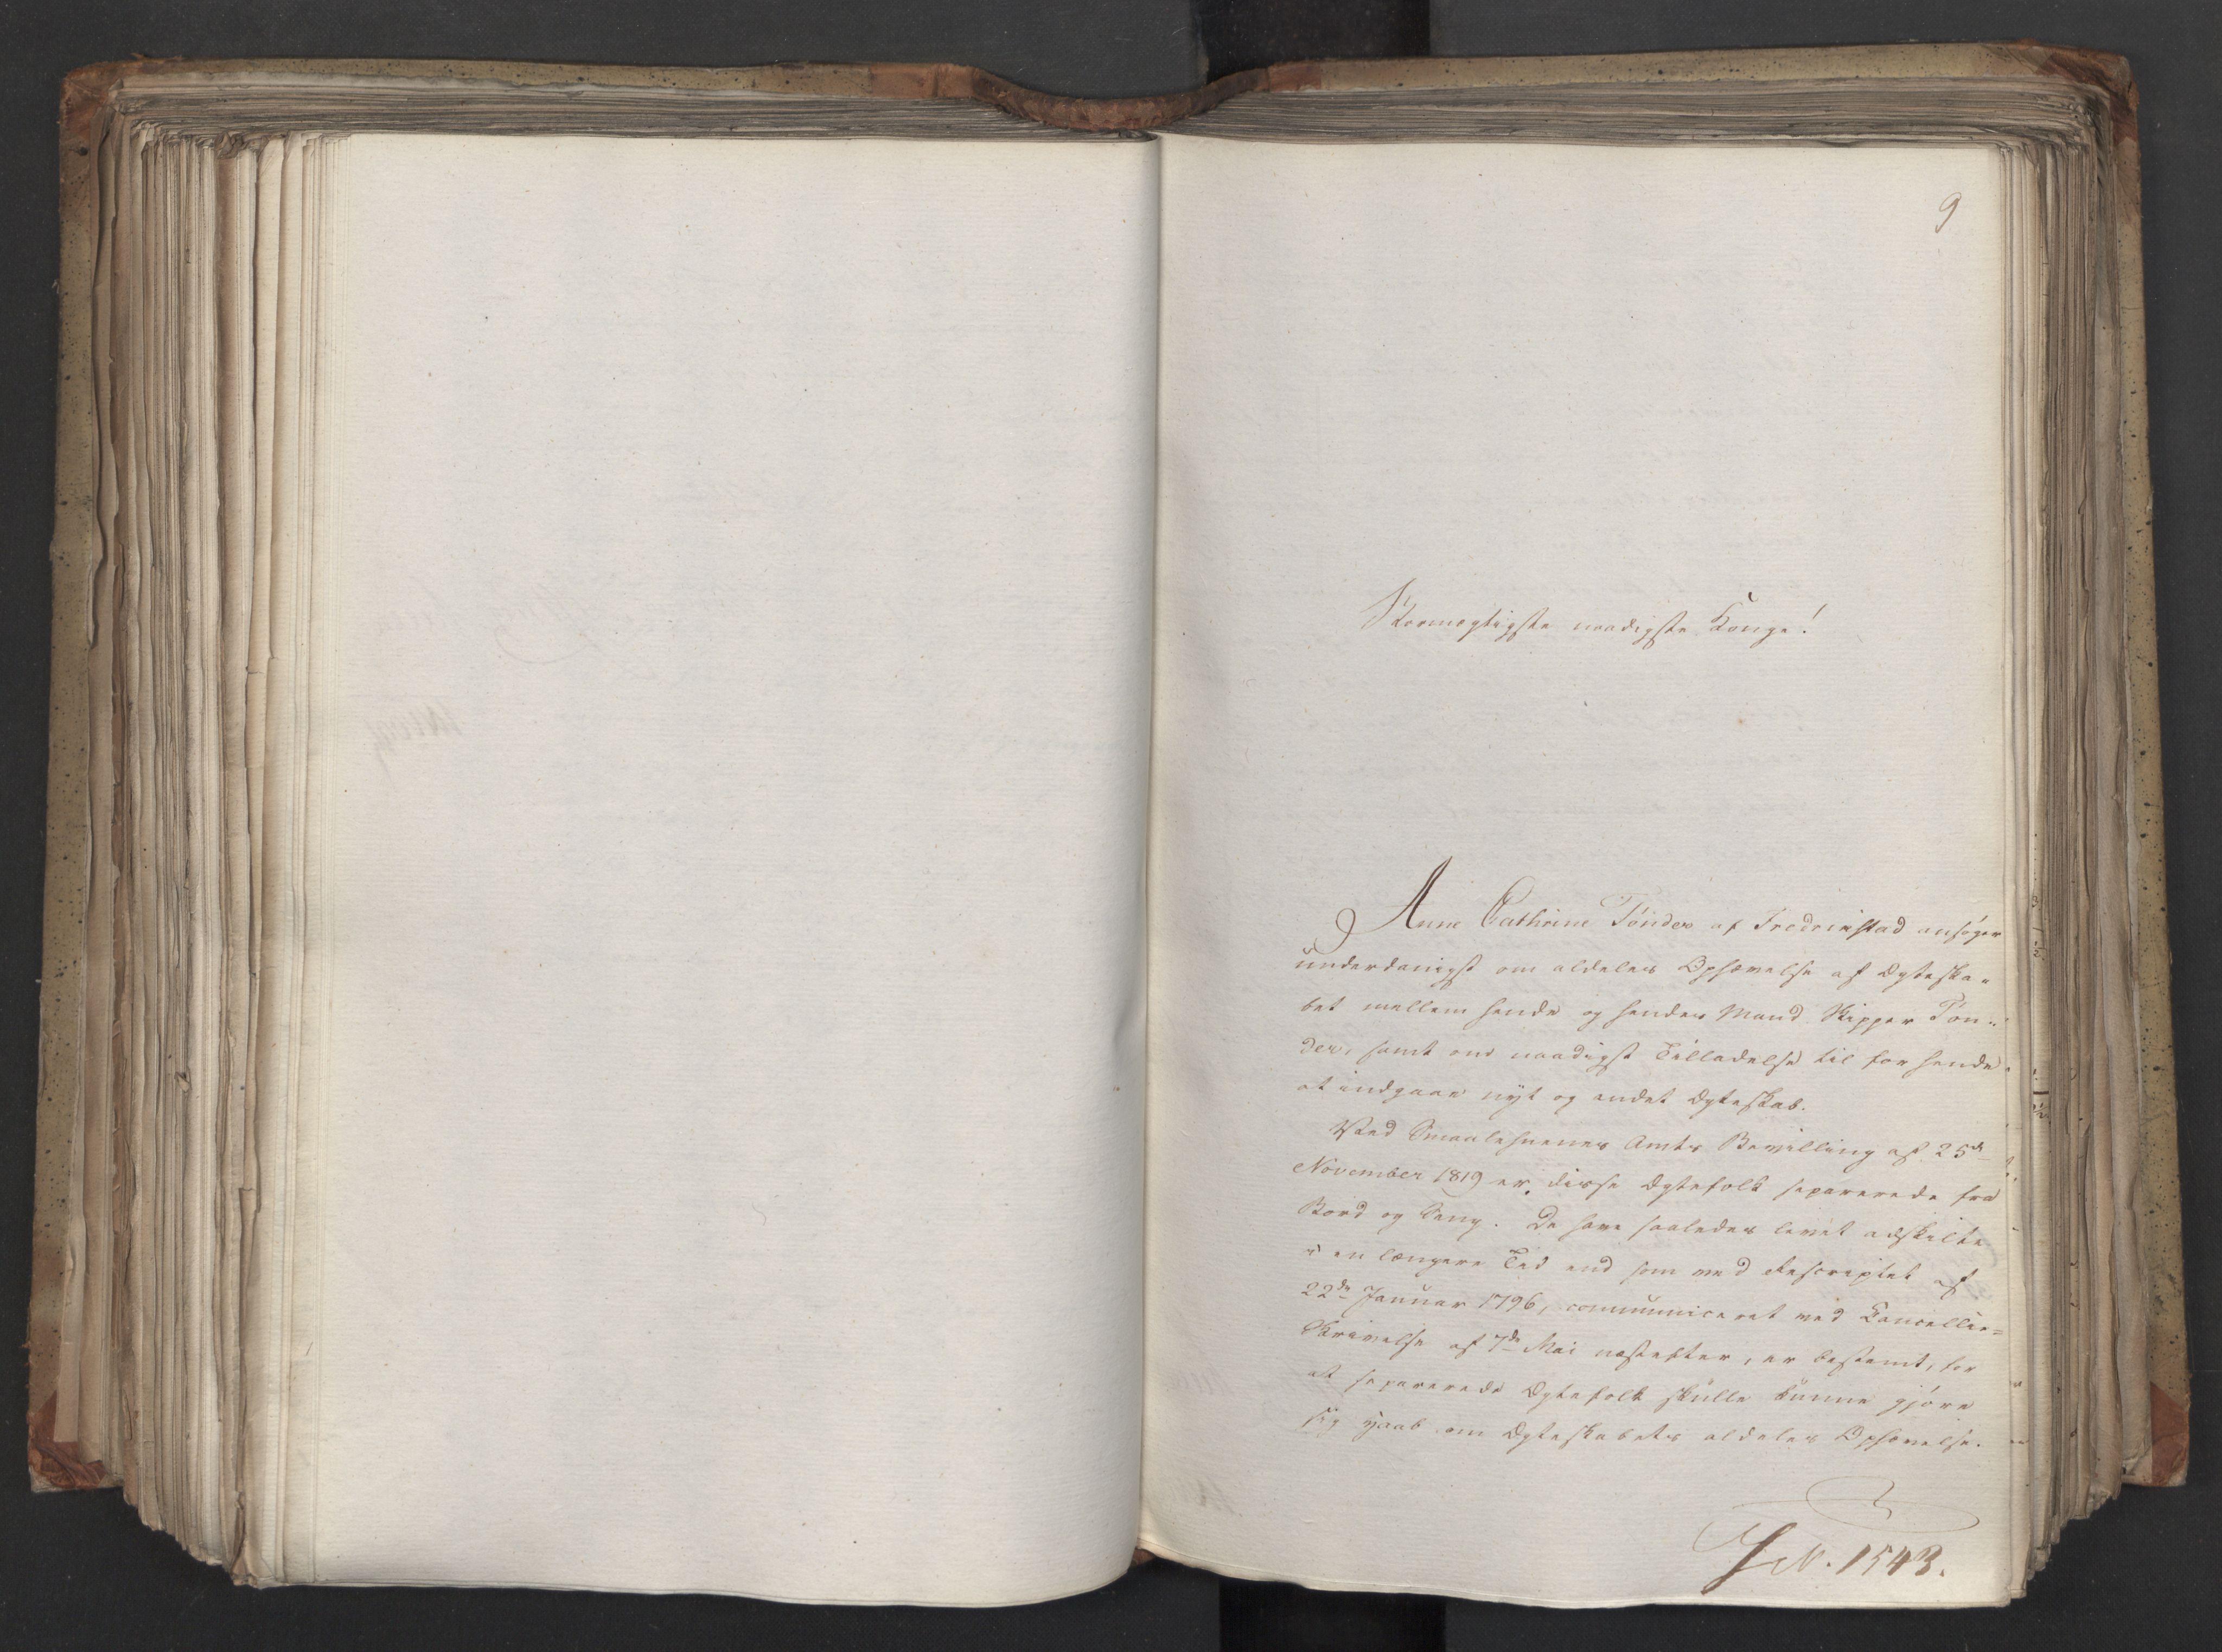 9
Stormægtigste naadigste Konge!
Anne Cathrine Tönder af Fredrikstad ansøger
underdanigst om aldeles Ophævelse af Ægteska-
bet mellem hende og hendes Mand Skipper Tön-
der, samt om naadigst Tilladelse til for hende
at indgaae nyt og andet Ægteskab.
Ved Smaalehnenes Amts Bevilling af 25de
November 1819 er disse Ægtefolk separerede fra
Bord og Seng. De have saaledes levet adskilte
i en længere Tid end som ved Rescriptet af
22de Januar 1796, communiceret ved Cancellie-
Skrivelse af 7de Mai næstefter, er bestemt, for
at separerede Ægtefolk skulle kunne gjøre
sig Haab om Ægteskabets aldeles Ophævelse.
N. 1543.